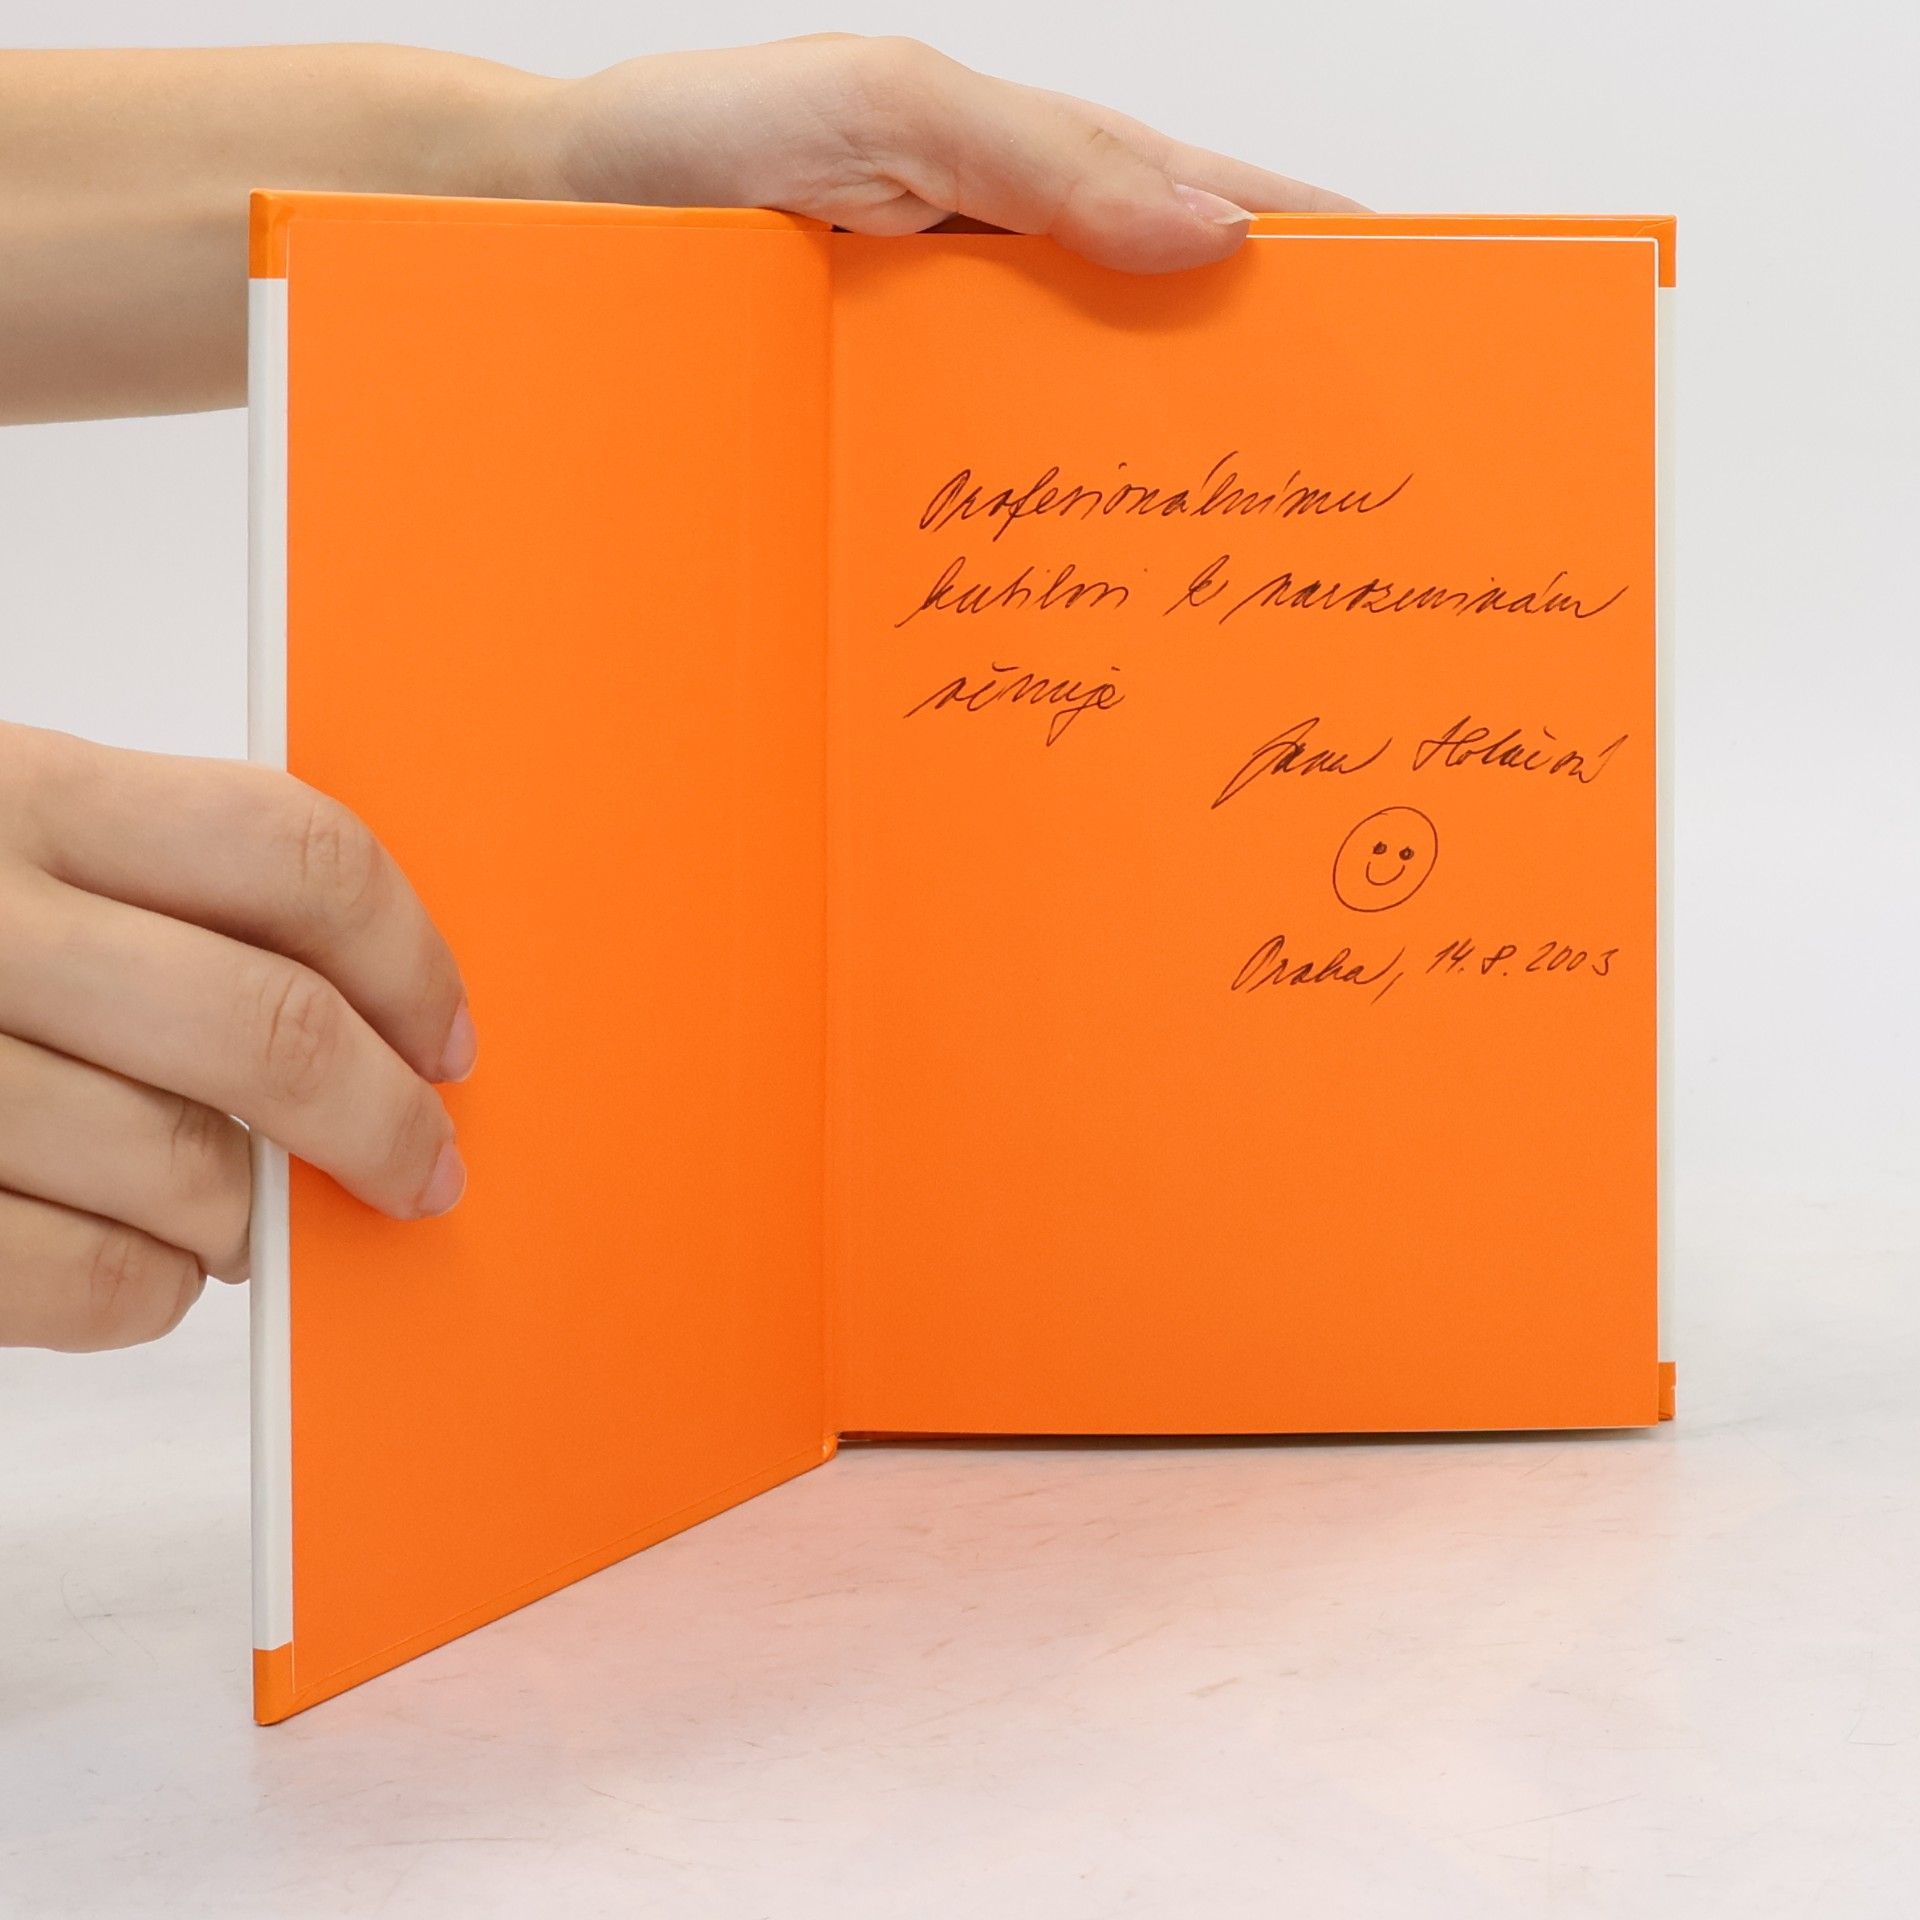 Profesionálnímu
kutilovi k narozeninám
věnuje
Jana
Praha, 14. 8. 2003